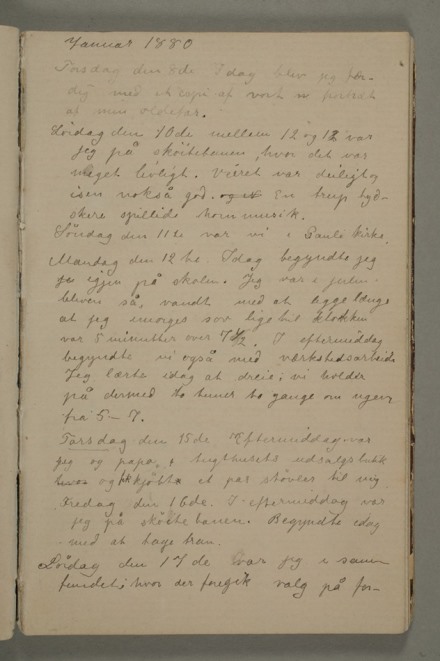 Januar 1880
Torsdag den 8de. Idag blev jeg fær-
dig med et copi af vort portræt
af min oldefar.
Lördag den 10de mellem 12 og 12 var
jeg på sköitebanen, hvor det var
meget livligt. Veiret var deiligt og
isen nokså god. En trup tyd-
skere spillede hornmusik.
Söndag den 11te var vi i Pauls kirke.
Mandag den 12te. Idag begyndte jeg
igjen på skolen. Jeg var i julen
bleven så vandt med at ligge længe
at jeg imorges sov lige til klokken
var 5 minutter over 7 1/2. I eftermiddag
begyndte vi også med værkstedsarbeide
Jeg lærte idag at dreie; vi holder
på dermed to timer to gange om ugen
fra 5-7.
Torsdag den 15de. Eftermiddag var
jeg og papa i tugthusets udsalgsbutik
og kjöbte et par stövler til mig.
Fredag den 16de. I eftermiddag var
jeg på sköitebanen. Begyndte idag
med at tage tran.
Lördag den 17de var jeg i samm-
fundet, hvor der foregik valg på for-